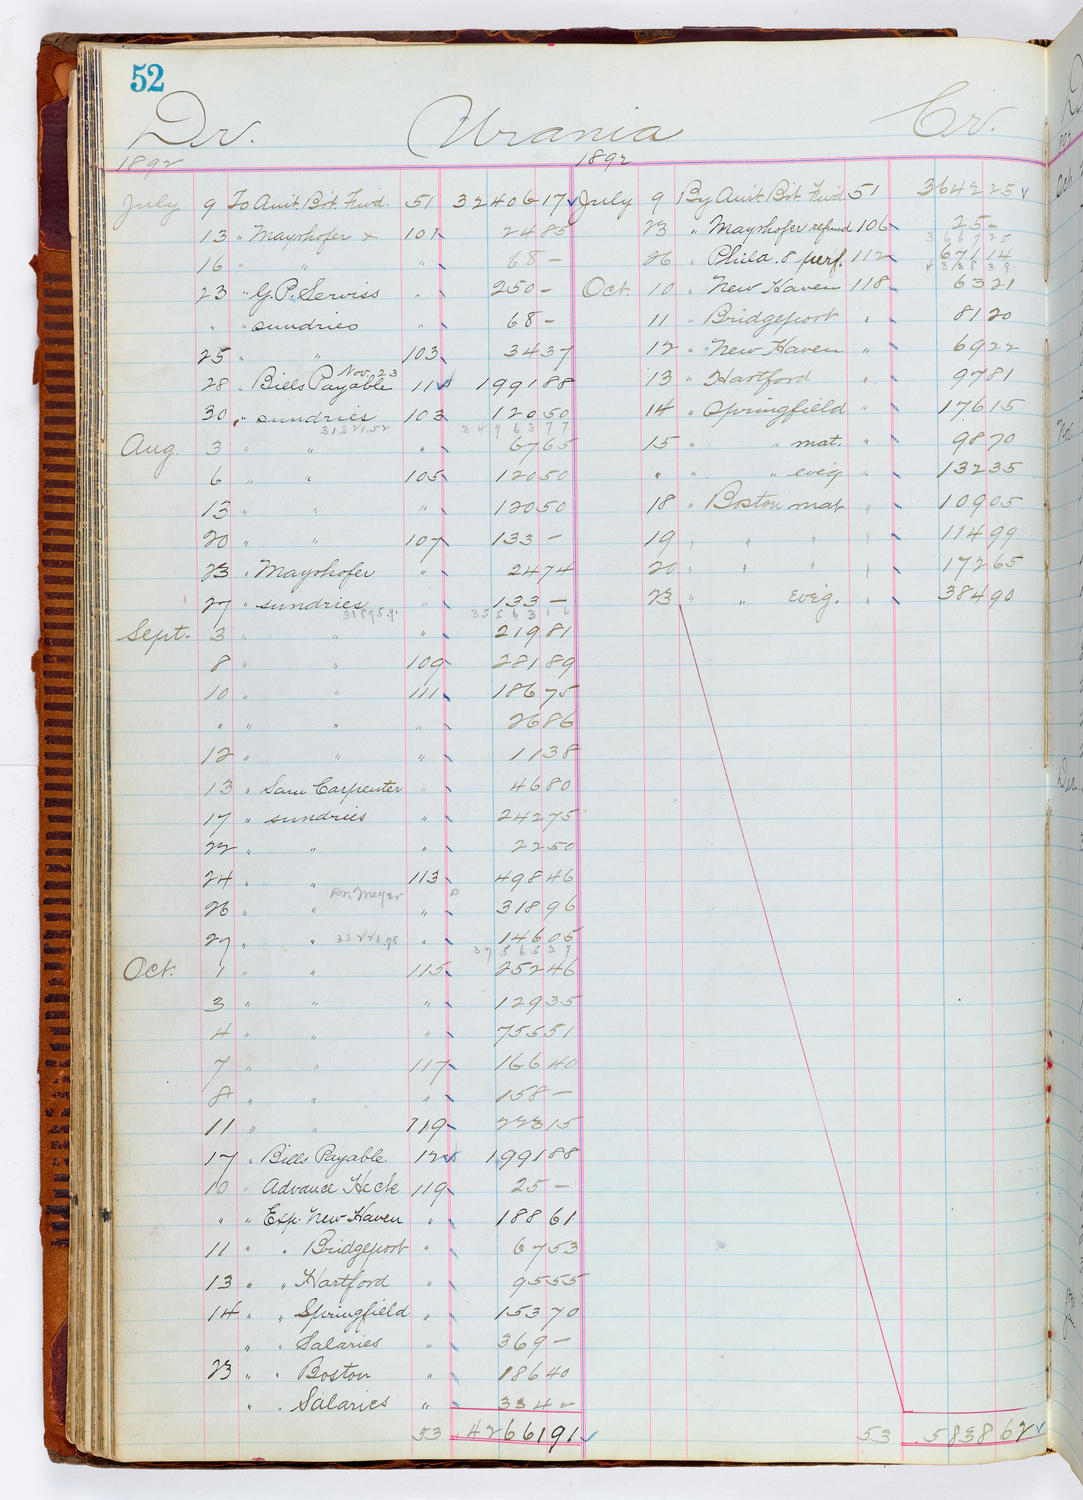 52
Dr. Urania Cr.
1892 1892
July 9 To Amt. Bot. Fwd. 51 32406 17
13 " Mayrhofer x 101 24 85
16 " " " 68 —
23 " G.P. Serviss " 250 —
" " sundries " 68 —
25 " " 103 34 37
Nov. 23
28 " Bills Payable 11 1991 88
30 " sundries 103 120 50
31321.52 34963 77
Aug. 3 " " " 67 65
6 " " 105 120 50
13 " " " 120 50
20 " " 107 133 —
23 " Mayrhofer " 24 74
27 " sundries " 133 —
31895.91 35563 16
Sept. 3 " " " 219 81
8 " " 109 281 89
10 " " 111 186 75
" " " " 26 86
12 " " " 11 38
13 " Sam Carpenter " 46 80
17 " sundries " 242 75
22 " " " 22 50
24 " " 113 498 46
Dr. Meyer
26 " " " 318 96
27 " " " 146 05
33226.98 37565 37
Oct. 1 " " 115 252 46
3 " " " 129 35
4 " " " 755 51
7 " " 117 166 40
8 " " " 158 —
11 " " 119 223 15
17 " Bills Payable 12 1991 88
10 " Advance Heck 119 25 —
" " Exp. New Haven " 188 61
11 " " Bridgeport " 67 53
13 " " Hartford " 95 55
14 " " Springfield " 153 70
" " Salaries " 369 —
23 " " Boston " 186 40
" " Salaries " 334 —
53 42661 91
July 9 By Amt. Bot. Fwd. 51 3642 25
23 " Mayrhofer refund 106 25 —
3667 25
26 " Phila. 8 perf. 112 671 14
Oct. 10 " New Haven 118 63 21
11 " Bridgeport " 81 20
12 " New Haven " 69 22
13 " Hartford " 97 81
14 " Springfield " 176 15
15 " " mat. " 98 70
" " " eveg " 132 35
18 " Boston mat " 109 05
19 " " " " 114 99
20 " " " " 172 65
23 " " Eveg. " 384 90
53 5838 62